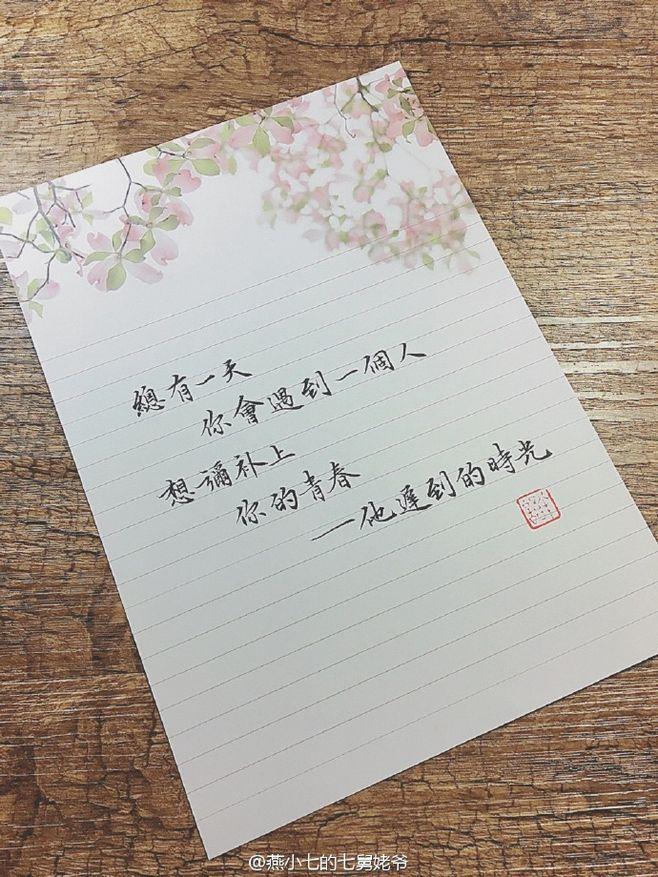 總有一天
你會遇到一個人
想彌补上
你的青春
一他遲到的時光
@燕小七的七舅姥爷